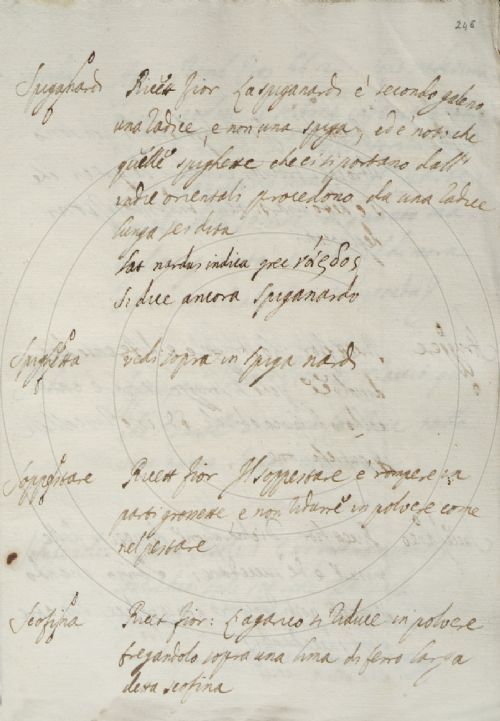 246
Spiganardi Ricett fior La spiganardi è secondo galeno
una radice, e non una spiga, ed è noto che
quelle spighette che ci si portano dall
indie orientali procedono da una radice
lunga sei dita
Lat nardus indica grec νάρδος
si dice ancora spiganardo
Spighetta vedi sopra in spiga nardi
Soppestare Ricett fior Il soppestare è rompere in
parti grossette e non ridurre in polvere come
nel pestare
Scofina Ricett fior: L'agarico si riduce in polvere
fregandolo sopra una lima di ferro larga
detta scofina